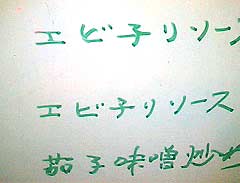 エビ子リソース
エビ子リソース
茄子味噌炒め